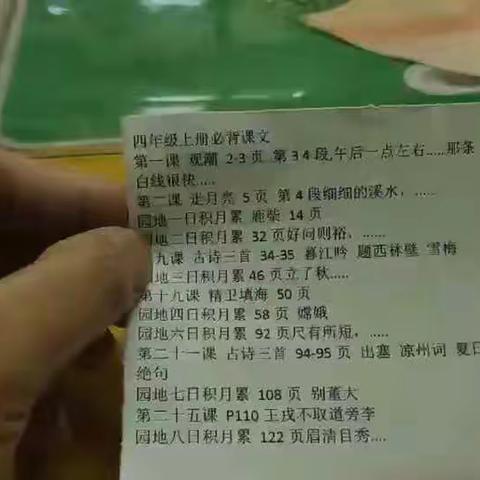 四年级上册必背课文
第一课 观潮 2-3页 第34段,午后一点左右.....那条
白线很快.....
第二课 走月亮 5页 第4段细细的溪水，......
园地一日积月累 鹿柴 14页
园地二日积月累 32页好问则裕，......
九课 古诗三首 34-35 暮江吟 题西林壁 雪梅
地三日积月累46页立了秋.....
第十九课 精卫填海 50页
园地四日积月累 58页 嫦娥
园地六日积月累 92页尺有所短，......
第二十一课 古诗三首 94-95页 出塞 凉州词 夏日
绝句
园地七日积月累 108页 别董大
第二十五课 P110王戎不取道旁李
园地八日积月累 122页眉清目秀....